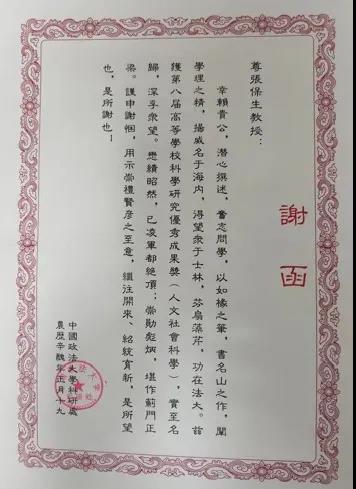 謝函
尊張保生教授：
幸賴貴公，潛心撰述，奮志問學，以如椽之筆，書名山之作，闡
學理之精，揚威名于海內，得望衆于士林，芬扇藻芹，功在法大。茲
獲第八屆高等學校科學研究優秀成果獎（人文社會科學），實至名
歸，深孚衆望。懋績昭然，已凌軍都絶頂；崇勛彪炳，堪作薊門正
梁。謹申謝悃，用示崇禮賢彥之至意，繼往開來、紹統育新，是所望
也，是所謝也！
中國政法大學科研處
農歷辛醜年正月十九